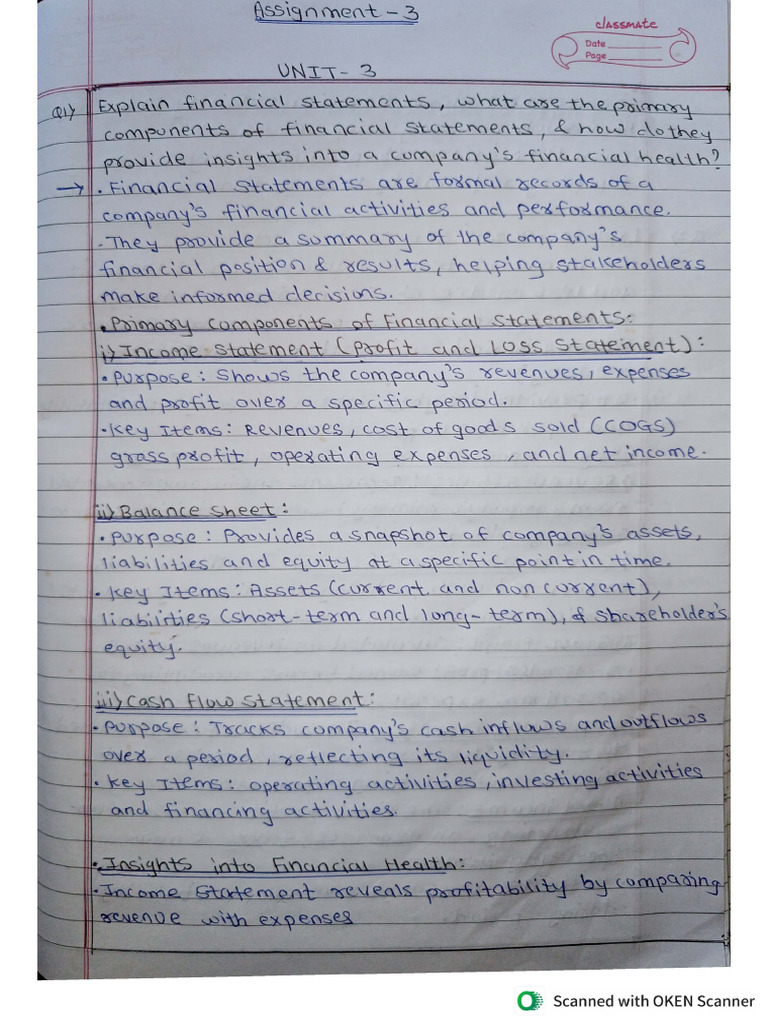 Assignment-3
classmate
Date
Page
UNIT-3
Q1) Explain financial statements, what are the primary
components of financial statements, & how do they
provide insights into a company's financial health?
→ • Financial statements are formal records of a
company's financial activities and performance.
- They provide a summary of the company's
financial position & results, helping stakeholders
make informed decisions.
• Primary components of Financial Statements:
i) Income statement (Profit and Loss Statement):
• Purpose: Shows the company's revenues, expenses
and profit over a specific period.
• Key Items: Revenues, cost of goods sold (COGS)
gross profit, operating expenses, and net income.
ii) Balance sheet:
• Purpose: Provides a snapshot of company's assets,
liabilities and equity at a specific point in time.
• Key Items: Assets (current and non current),
liabilities (short-term and long-term), & shareholder's
equity.
iii) Cash flow statement:
• Purpose: Tracks company's cash inflows and outflows
over a period, reflecting its liquidity.
• Key Items: operating activities, investing activities
and financing activities.
• Insights into Financial Health:
• Income Statement reveals profitability by comparing
revenue with expenses
Scanned with OKEN Scanner